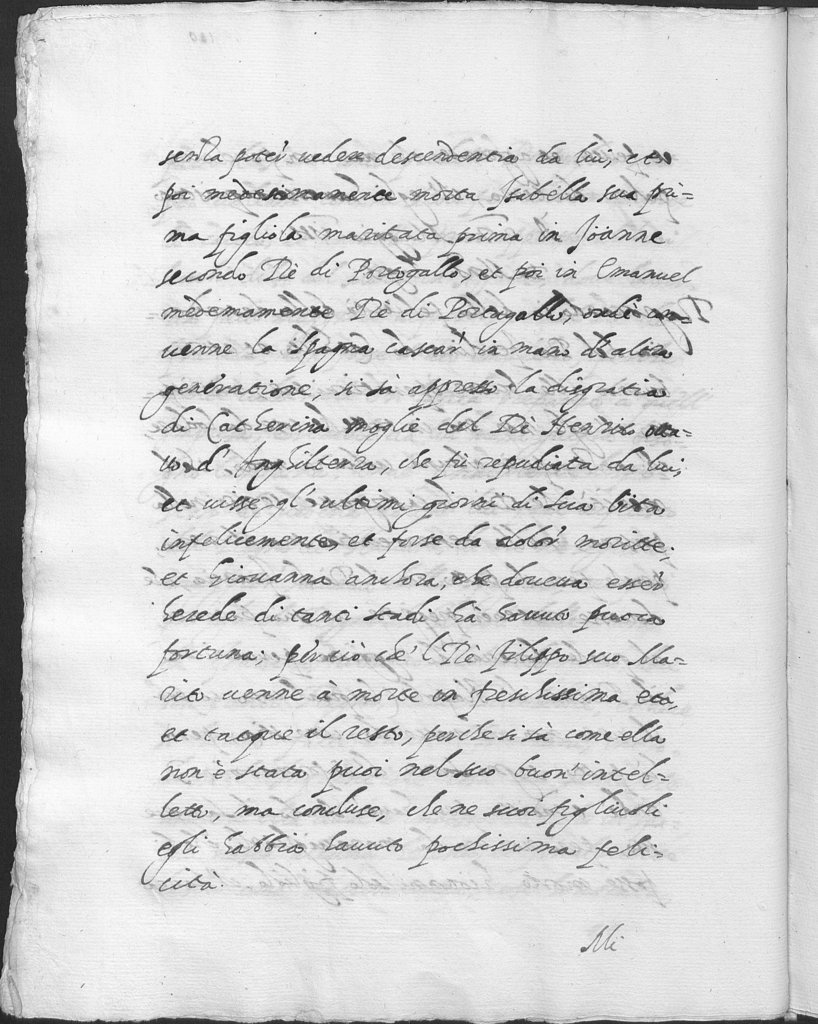 senza poter vedere descendentia da lui, et
poi medesimamente morta Isabella sua pri=
ma figliola maritata prima in Joanne
secondo Rè di Portogallo, et poi in Emanuel
medemamente Rè di Portugallo, onde
venne la Spagna cascar in mano d'altra
generatione, si sà appresso la disgratia
di Catherina moglie del Rè Henrico otta=
vo d'Inghilterra, che fù repudiata da lui,
et visse gl'ultimi giorni di sua vita
infelicemente, et forse da dolor moritte;
et Giovanna anchora, che doveva esser
herede di tanti stadi hà havuto puoca
fortuna; perciò che'l Rè Filippo suo Ma=
rito venne à morte in freschissima età,
et tacque il resto, perche si sà come ella
non è stata puoi nel suo buon'intel=
letto, ma concluse, che ne suoi figliuoli
egli habbia havuto pochissima feli=
cità.
Mi